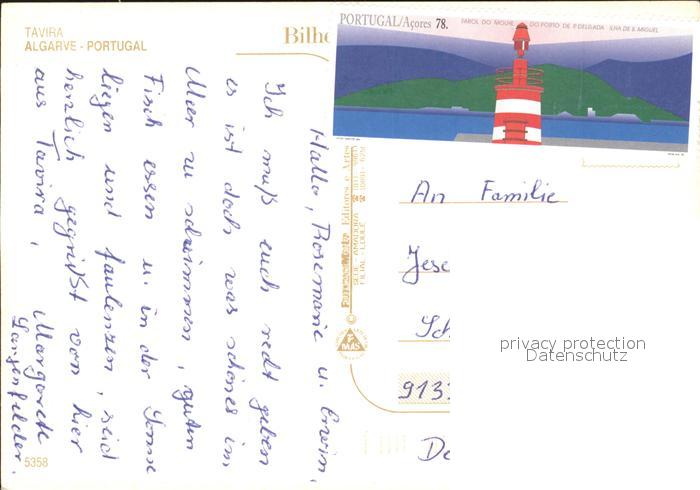 TAVIRA
ALGARVE - PORTUGAL
Bilhe
PORTUGAL/Açores 78.
FAROL DO MOLHE DO PORTO DE P. DELGADA ILHA DE S. MIGUEL
Hallo, Rosemarie u. Erwin,
Ich muß euch recht geben
es ist doch was schönes im
Meer zu schwimmen, guten
Fisch essen u. in der Sonne
liegen und faulenzen, seid
herzlich gegrüßt von hier
aus Tavira, Margarete
Langenfelder.
Editores e Artes
SEDE - AMADORA
FILIAL - LOULÉ
©
MAS
An Familie
Jese
Sch
9133
De
privacy protection
Datenschutz
5358